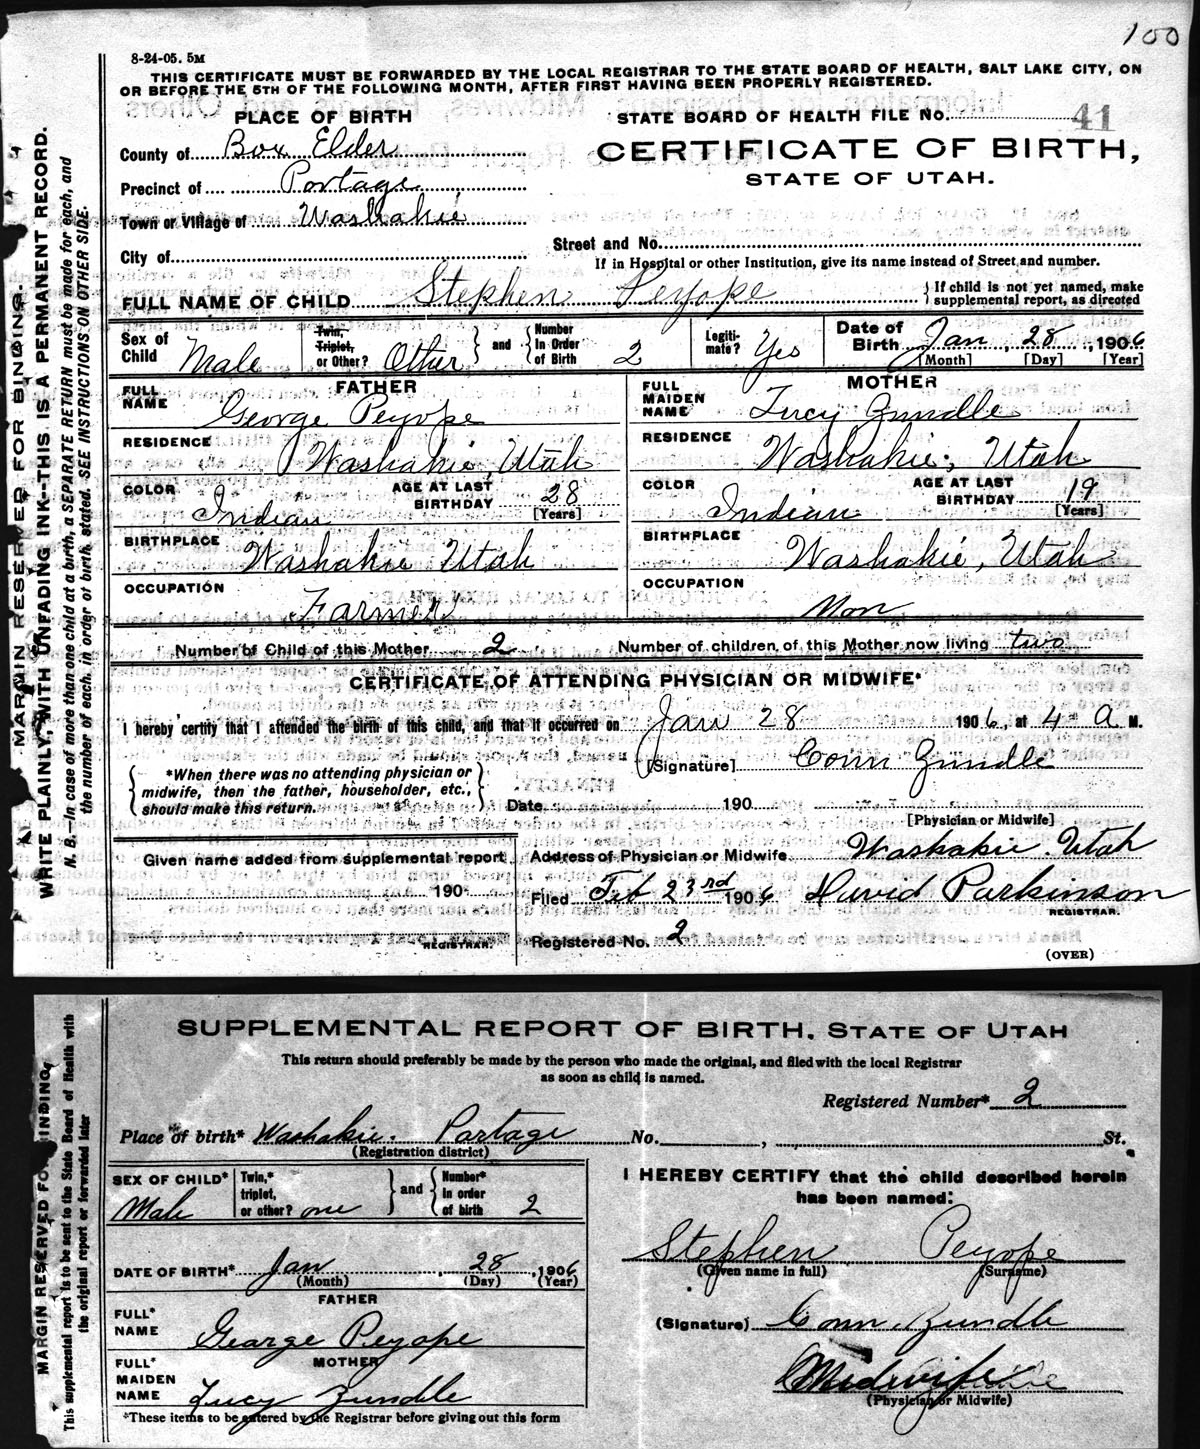 100
8-24-05. 5M
THIS CERTIFICATE MUST BE FORWARDED BY THE LOCAL REGISTRAR TO THE STATE BOARD OF HEALTH, SALT LAKE CITY, ON
OR BEFORE THE 5TH OF THE FOLLOWING MONTH, AFTER FIRST HAVING BEEN PROPERLY REGISTERED.
PLACE OF BIRTH
STATE BOARD OF HEALTH FILE No. 41
County of Box Elder
CERTIFICATE OF BIRTH,
STATE OF UTAH.
Precinct of Portage
Town or Village of Washakie
Street and No.
City of
If in Hospital or other Institution, give its name instead of Street and number.
FULL NAME OF CHILD Stephen Peyope
{If child is not yet named, make
supplemental report, as directed
Sex of Child Male
Twin, Triplet, or Other? Other
and
Number in Order of Birth 2
Legitimate? Yes
Date of Birth Jan 28, 1906
[Month] [Day] [Year]
FATHER
FULL NAME George Peyope
RESIDENCE Washakie, Utah
COLOR Indian
AGE AT LAST BIRTHDAY 28
[Years]
BIRTHPLACE Washakie Utah
OCCUPATION Farmer
MOTHER
FULL MAIDEN NAME Lucy Zundle
RESIDENCE Washakie, Utah
COLOR Indian
AGE AT LAST BIRTHDAY 19
[Years]
BIRTHPLACE Washakie, Utah
OCCUPATION Non
Number of Child of this Mother 2
Number of children, of this Mother now living two
CERTIFICATE OF ATTENDING PHYSICIAN OR MIDWIFE*
I hereby certify that I attended the birth of this child, and that it occurred on Jan 28 1906, at 4 A M.
[Signature] Conn Zundle
*When there was no attending physician or
midwife, then the father, householder, etc.,
should make this return.
Date 190
[Physician or Midwife]
Given name added from supplemental report
190
REGISTRAR.
Address of Physician or Midwife Washakie. Utah
Filed Feb 23rd 1906 David Parkinson
REGISTRAR.
Registered No. 2
(OVER)
MARGIN RESERVED FOR BINDING.
WRITE PLAINLY, WITH UNFADING INK--THIS IS A PERMANENT RECORD.
N. B.—In case of more than one child at a birth, a SEPARATE RETURN must be made for each, and
the number of each, in order of birth, stated. SEE INSTRUCTIONS ON OTHER SIDE.
SUPPLEMENTAL REPORT OF BIRTH, STATE OF UTAH
This return should preferably be made by the person who made the original, and filed with the local Registrar
as soon as child is named.
Registered Number* 2
Place of birth* Washakie. Portage No. , St.
(Registration district)
SEX OF CHILD* Male
Twin,* triplet, or other? one
and
Number* in order of birth 2
I HEREBY CERTIFY that the child described herein
has been named:
Stephen Peyope
(Given name in full) (Surname)
DATE OF BIRTH* Jan 28, 1906
(Month) (Day) (Year)
FATHER
FULL* NAME George Peyope
(Signature) Conn Zundle
MOTHER
FULL* MAIDEN NAME Lucy Zundle
Midwife
(Physician or Midwife)
*These items to be entered by the Registrar before giving out this form
MARGIN RESERVED FOR BINDING
This supplemental report is to be sent to the State Board of Health with
the original report or forwarded later